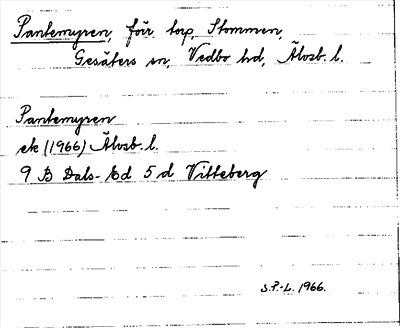 Pantemyren, förr torp, Stommen,
Gesäters sn, Vedbo hd, Älvsb. l.
Pantemyren
ek (1966) Älvsb. l.
9 B Dals-Ed 5 d Vitteberg
S.P.-L. 1966.